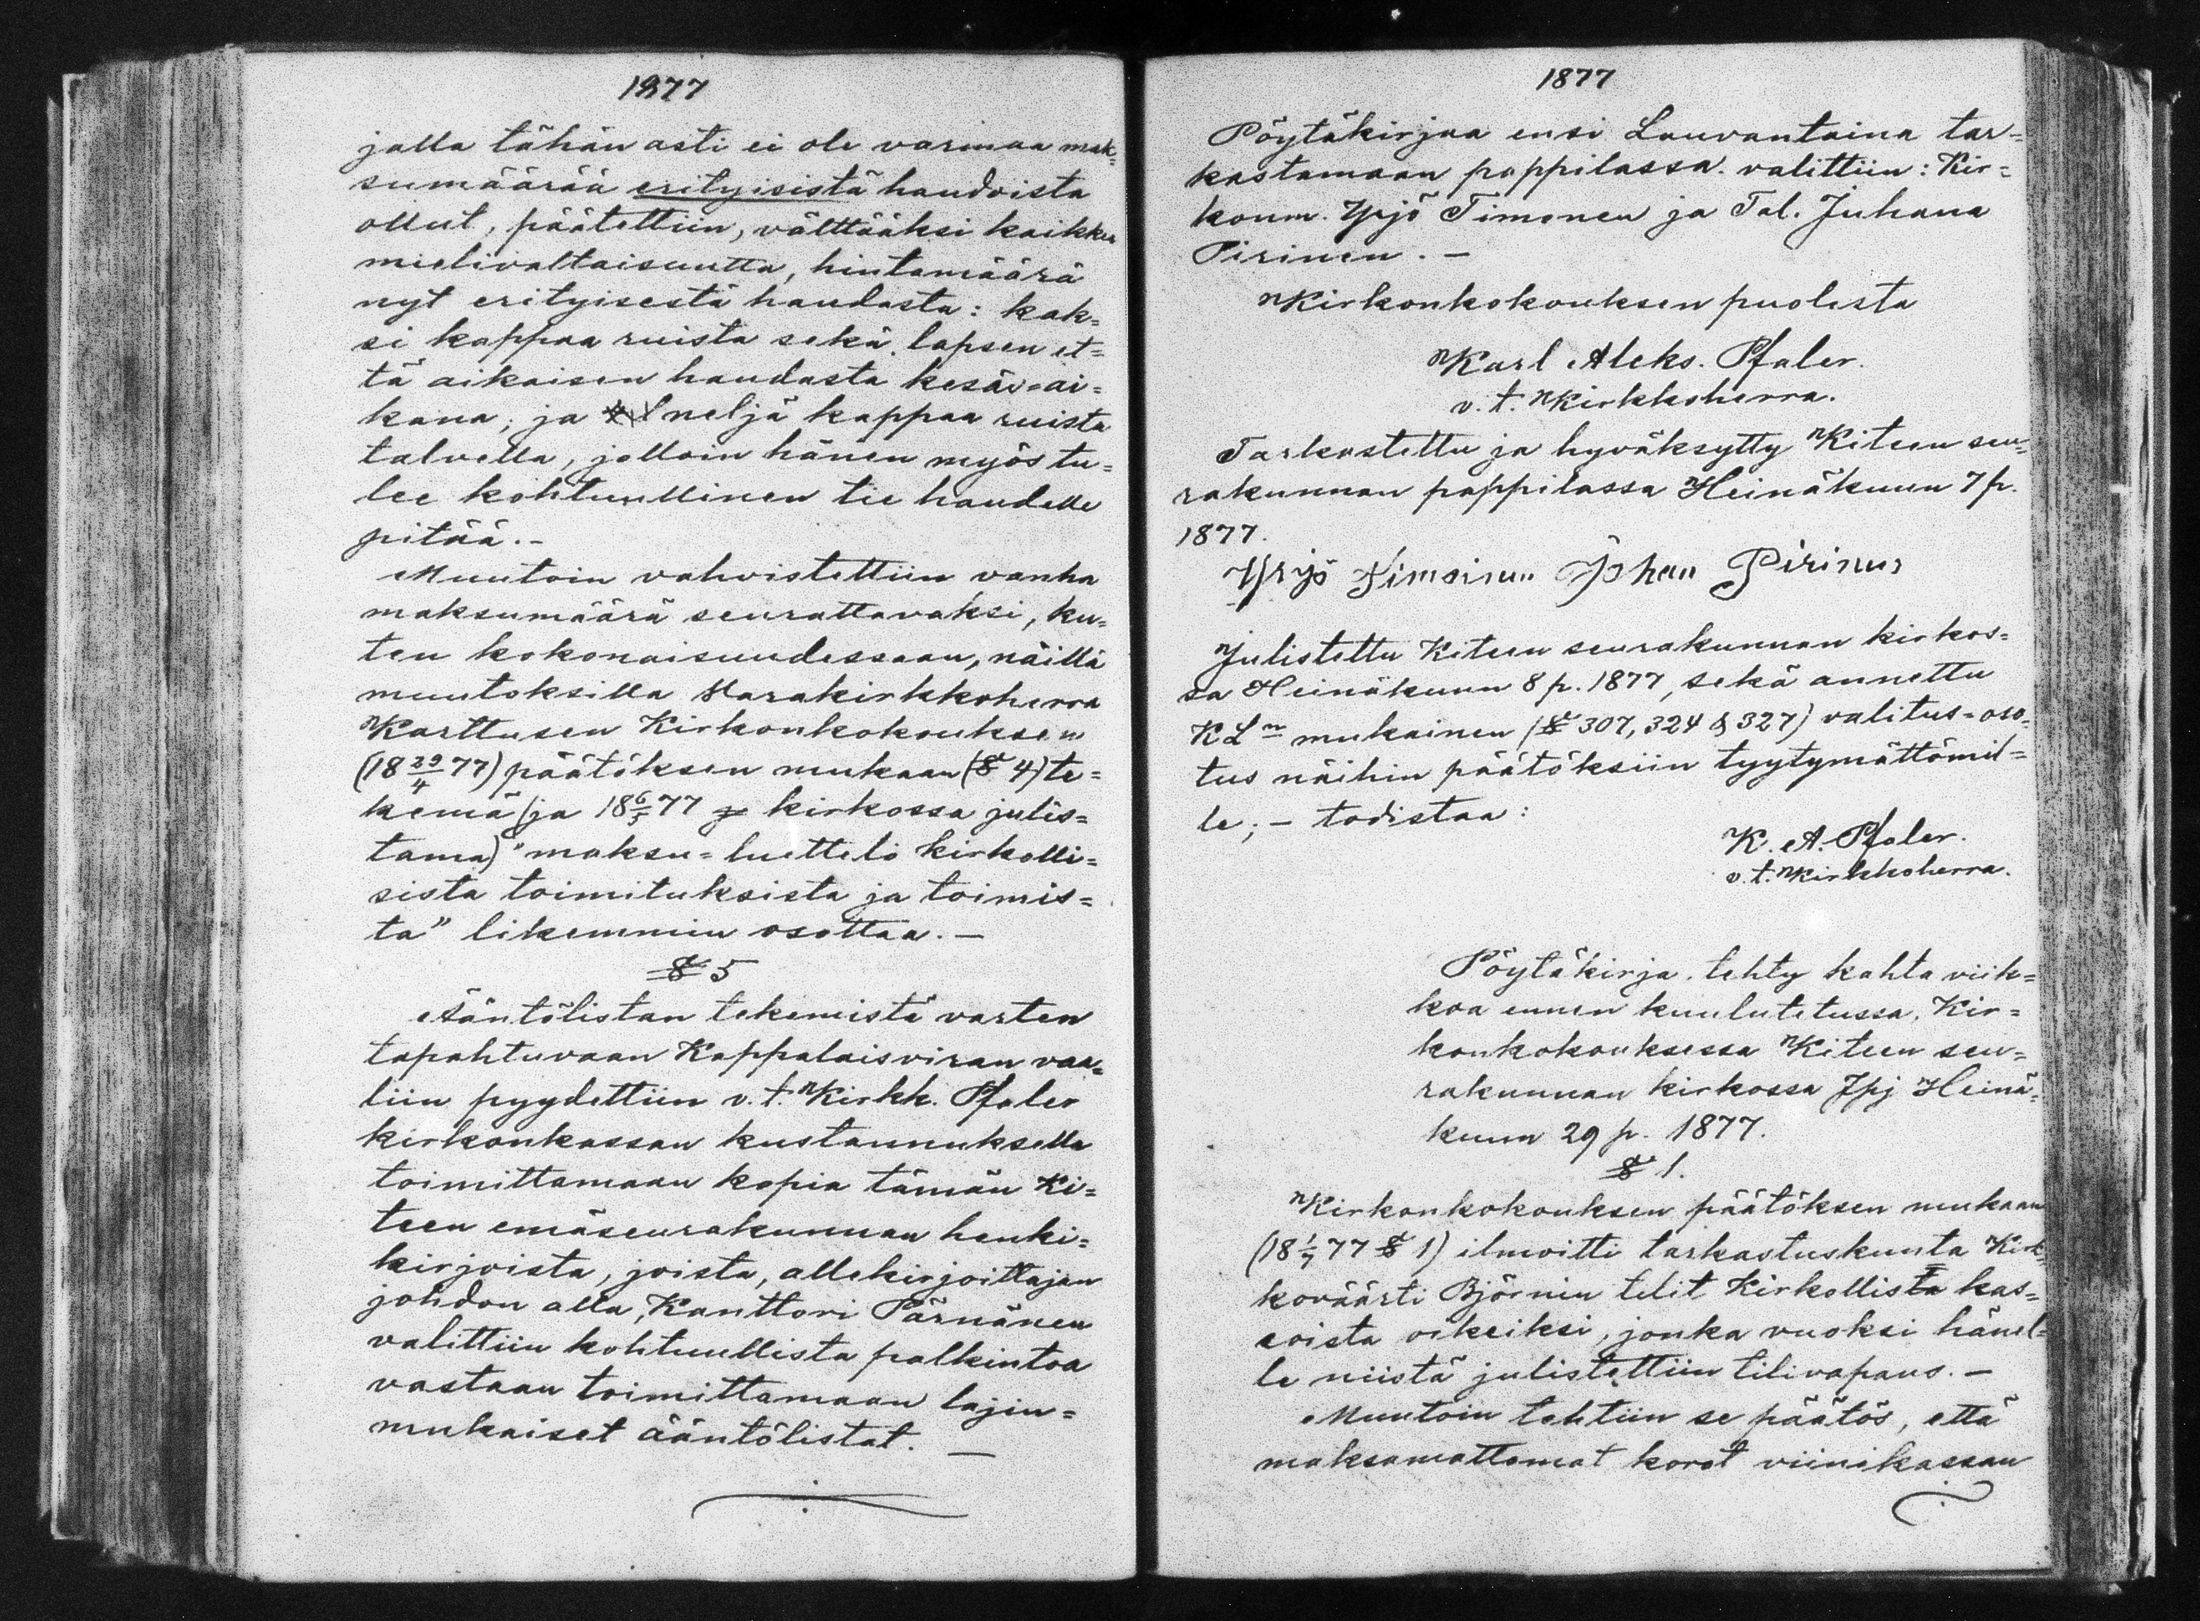 1877
jalla tähän asti ei ole varmaa mak=
sumäärää erityisistä haudoista
ollut, päätettiin, välttääksi kaikkea
mielivaltaisuutta, hintamäärä
nyt erityisestä haudasta: kak=
si kappaa ruista sekä lapsen et=
tä aikaisen haudasta kesäv=ai=
kana, ja neljä kappaa ruista
talvella, jolloin hänen myös tu=
lee kohtuullinen tie haudelle
pitää.-
Muutoin vahvistettiin vanha
maksumäärä seurattavaksi, ku=
ten kokonaisuudessaan, näillä
muutoksilla Varakirkkoherra
Karttusen Kirkonkokouksen
(18 29/4 77) päätöksen mukaan (§ 4) te=
kemä (ja 18 6/5 77 kirkossa julis=
tama) "maksu=luettelo kirkolli=
sista toimituksista ja toimis=
ta" likemmin osottaa. —
§ 5
Ääntölistan tekemistä varten
tapahtuvaan Kappalaisviran vaa=
liin pyydettiin v.t. Kirkk. Pfaler
kirkonkassan kustannuksella
toimittamaan kopia tämän Ki=
teen emäseurakunnan henki=
kirjoista, joista, allekirjoittajan
johdon alla, Kanttori Pärnänen
valittiin kohtuullista palkintoa
vastaan toimittamaan lajin=
mukaiset ääntölistat. —
1877
Pöytäkirjaa ensi Lauvantaina tar=
kastamaan pappilassa valittiin: Kir=
konm. Yrjö Timonen ja Tal. Juhana
Pirinen. —
Kirkonkokouksen puolesta
Karl Aleks. Pfaler.
v. t. Kirkkoherra.
Tarkastettu ja hyväksytty Kiteen seu=
rakunnan pappilassa Heinäkuun 7 p.
1877.
Yrjö Timoinen Johan Pirinen
Julistettu Kiteen seurakunnan kirkos=
sa Heinäkuun 8 p. 1877, sekä annettu
K L n mukainen (§ 307, 324 & 327) valitus=oso=
tus näihin päätöksiin tyytymättömil=
le; — todistaa:
K. A. Pfaler.
v. t. Kirkkoherra.
Pöytäkirja, tehty kahta viik=
koa ennen kuulutetussa, Kir=
konkokouksessa Kiteen seu=
rakunnan kirkossa Jpj Heinä=
kuun 29 p. 1877.
§ 1.
Kirkonkokouksen päätöksen mukaan
(18 1/7 77 § 1) ilmoitti tarkastuskunta Kirk=
koväärti Björnin telit Kirkollista kas=
soista oikeiksi, jonka vuoksi hänel=
le niistä julistettiin tilivapaus. —
Muutoin tehtiin se päätös, että
maksamattomat korot viinikassan